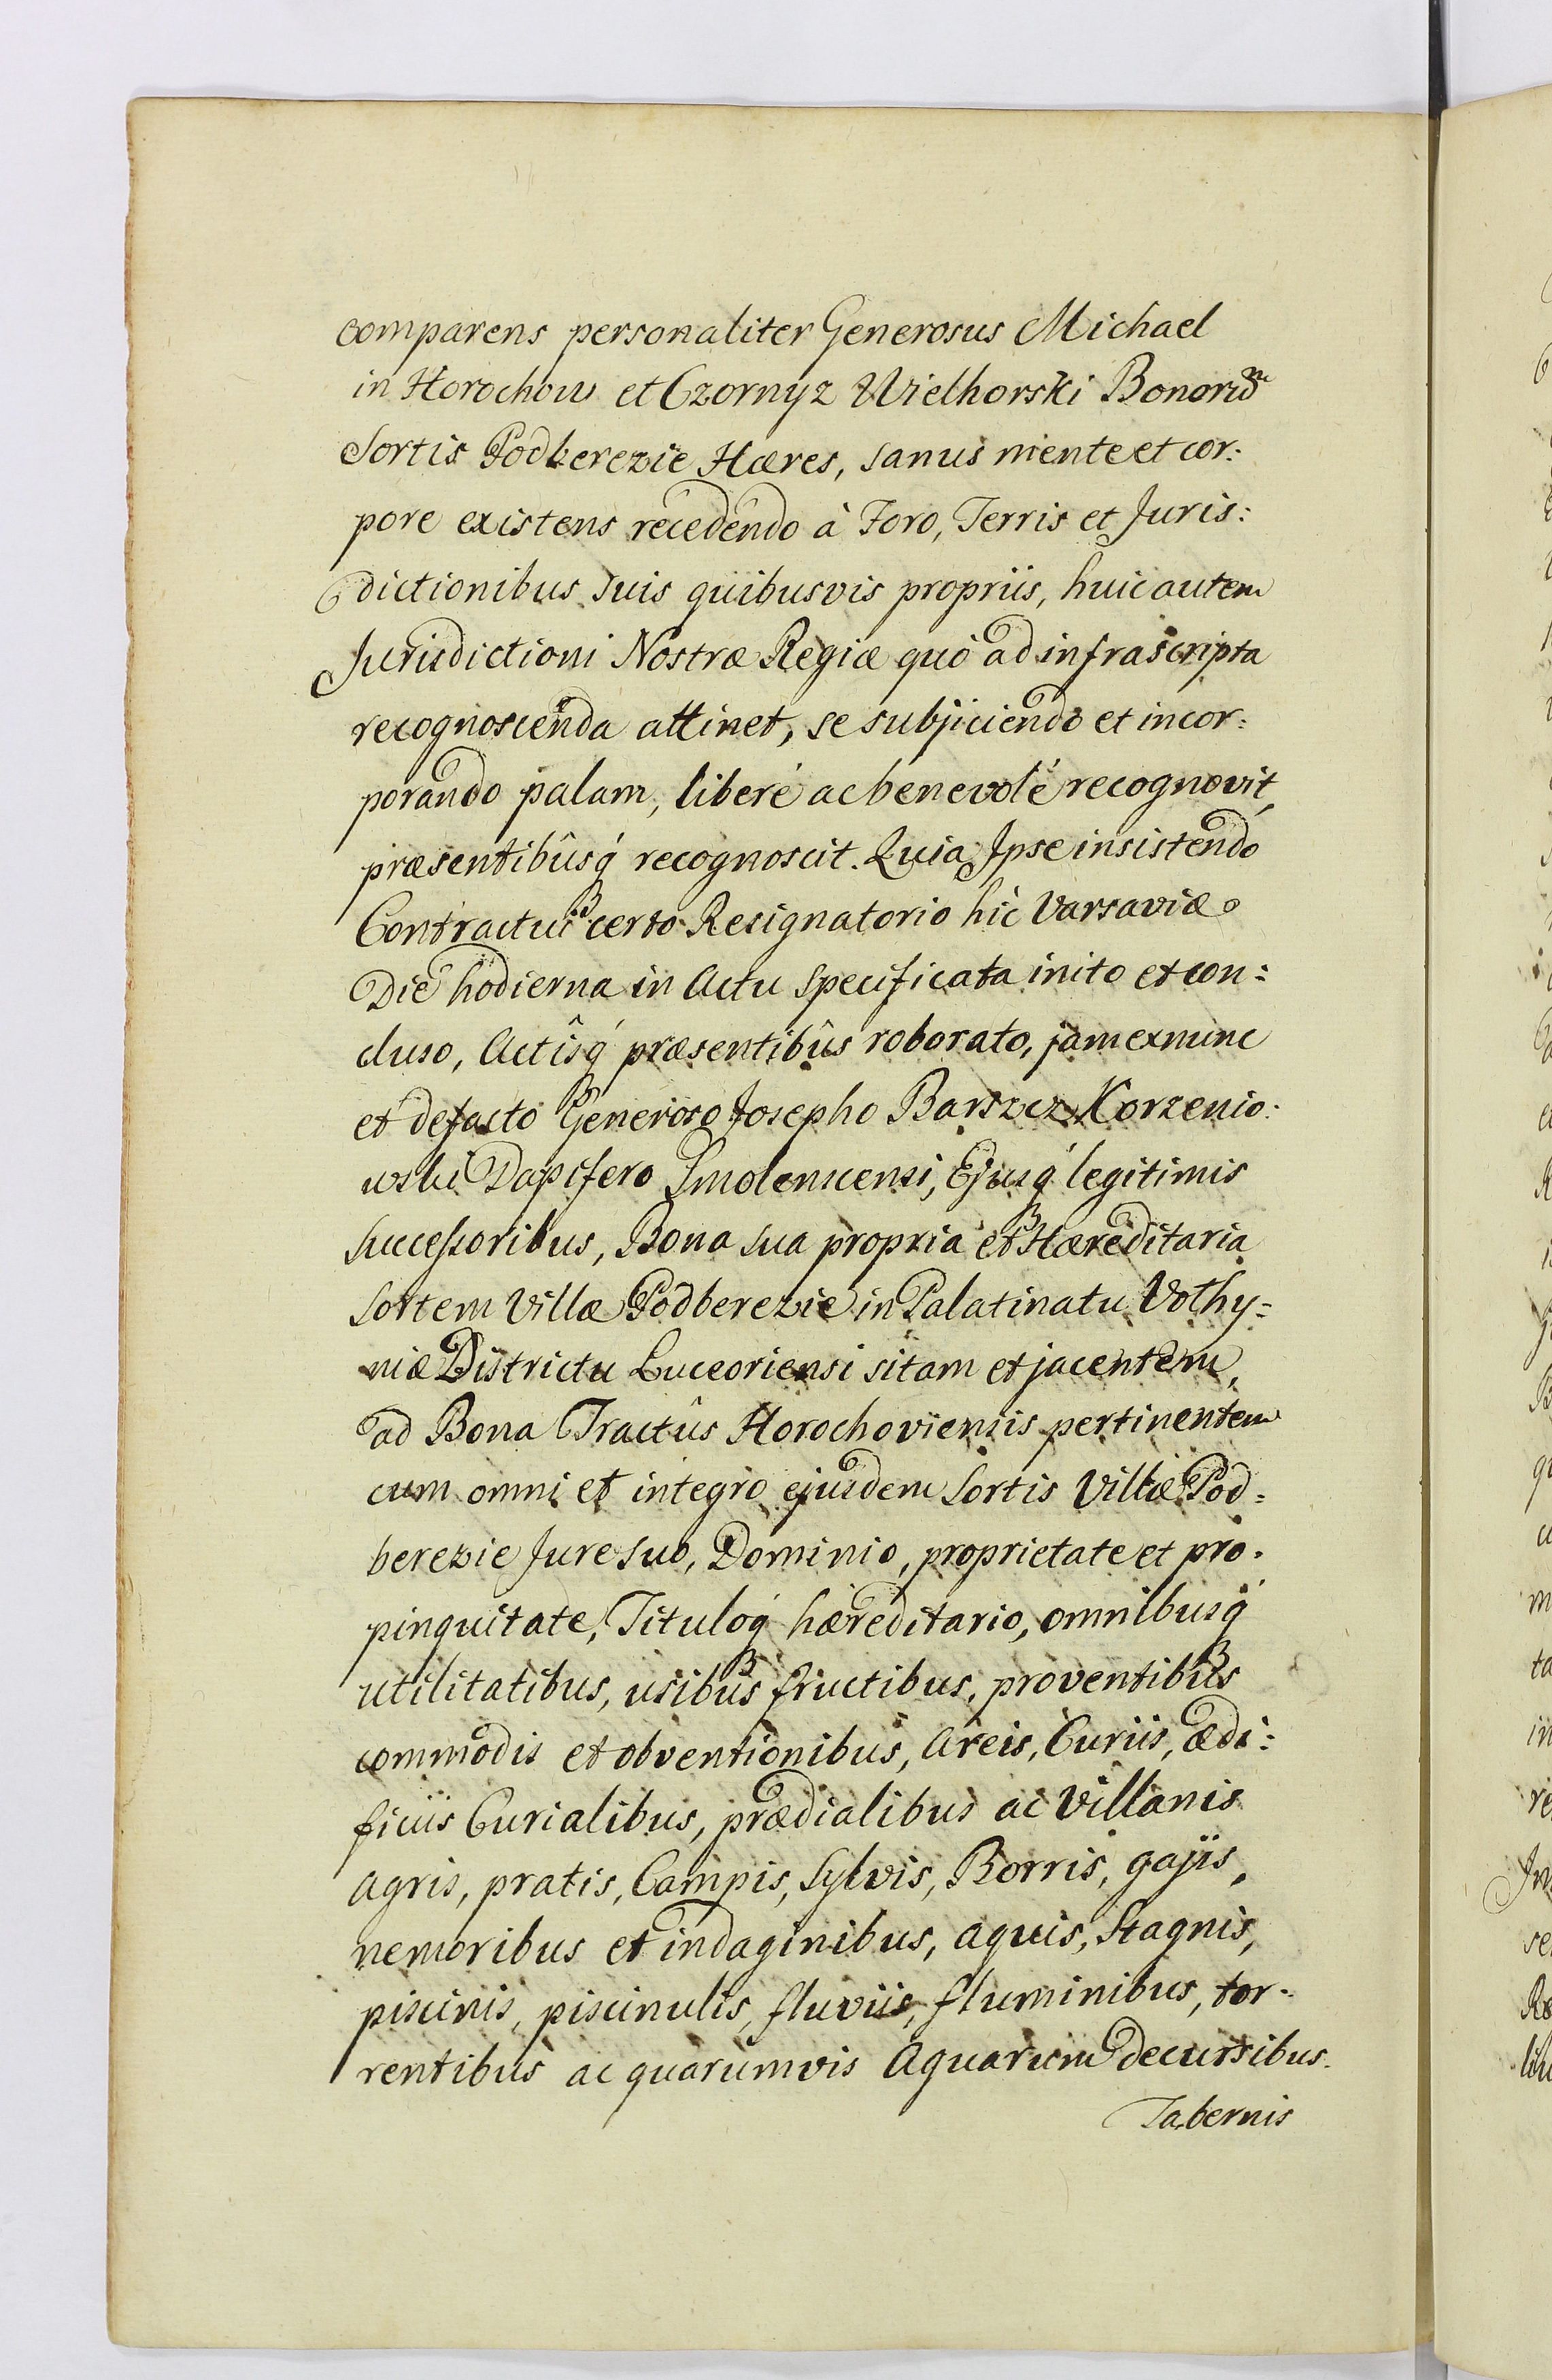 comparens personaliter Generosus Michael
in Horochow et Czornyz Wielhorski Bonorum
Sortis Podberezie Hæres, sanus mente et cor:
pore existens recedendo à Foro, Terris et Juris:
dictionibus suis quibusvis propriis, huic autem
Jurisdictioni Nostræ Regiæ quò ad infrascripta
recognoscenda attinet, se subjiciendo et incor:
porando palam, liberé ac benevolé recognovit,
præsentibûsq́ recognoscit. Quia Ipse insistendo
Contractui certo Resignatorio hìc Varsaviæ
Die hodierna in Actu specificata inito et con:
cluso, Actîsq́ præsentibûs roborato, jam ex nunc
et defacto Generoso Josepho Barszcz Korzenio:
wski Dapifero Smolenscensi, Ejusq́ legitimis
successoribus, Bona sua propria et Hæreditaria
sortem Villæ Podberezie in Palatinatu Volhy:
niæ Districtu Luceoriensi sitam et jacentem,
ad Bona Tractûs Horochoviensis pertinentem
cum omni et integro ejusdem Sortis Villæ Pod:
berezie Jure suo, Dominio, proprietate et pro:
pinquitate, Tituloq́ hæreditario, omnibusq́
utilitatibus, usibus fructibus, proventibus
commodis et obventionibus, Areis, Curiis, ædi:
ficiis Curialibus, prædialibus ac Villanis
Agris, pratis, Campis, Sylvis, Borris, gajis,
nemoribus et indaginibus, aquis, Stagnis,
piscinis, piscinulis, fluviis, fluminibus, tor:
rentibus ac quarumvis Aquarum decursibus.
Tabernis